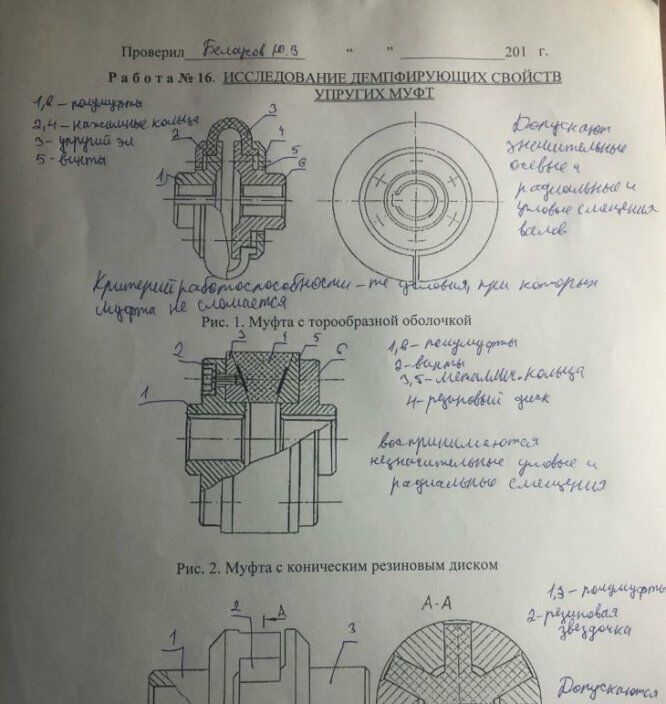 Проверил Белоусов Ю.В “ ” 201 г.
Работа № 16. ИССЛЕДОВАНИЕ ДЕМПФИРУЮЩИХ СВОЙСТВ
УПРУГИХ МУФТ
1,6 – полумуфты
2,4 – нажимные кольца
3 – упругий эл
5 – винты
1
2
3
4
5
6
Допускают
значительные
осевые и
радиальные и
угловые смещения
валов
Критерий работоспособности – те условия, при которых
муфта не сломается
Рис. 1. Муфта с торообразной оболочкой
1
2
3
4
5
6
1,6 – полумуфты
2 – винты
3,5 – металлич. кольца
4 – резиновый диск
воспринимаются
незначительные угловые и
радиальные смещения
Рис. 2. Муфта с коническим резиновым диском
1
2
А
3
А-А
1,3 – полумуфты
2 – резиновая
звездочка
Допускаются